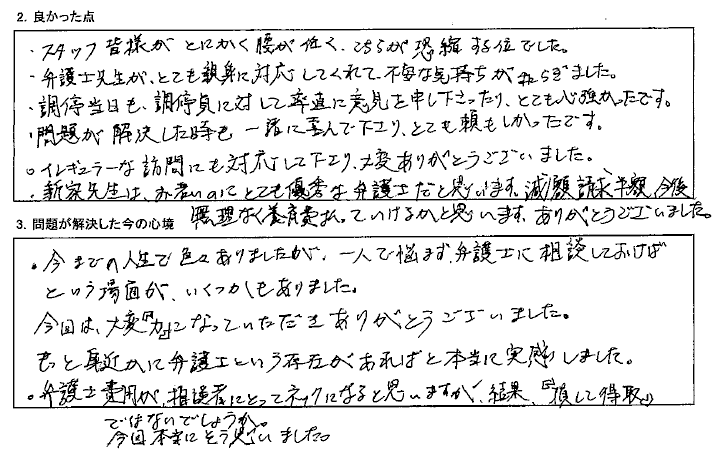 2. 良かった点
・スタッフ皆様がとにかく腰が低く、こちらが恐縮する位でした。
・弁護士先生が、とても親身に対応してくれて、不安な気持ちが和らぎました。
・調停当日も、調停員に対して率直に意見を申し下さったり、とても心強かったです。
・問題が解決した時も一緒に喜んで下さり、とても頼もしかったです。
○イレギュラーな訪問にも対応して下さり、大変ありがとうございました。
・新家先生は、お若いのにとても優秀な弁護士だと思います。減額請求、半額、今後
無理なく養育費払っていけるかと思います。ありがとうございました。
3. 問題が解決した今の心境
・今までの人生で色々ありましたが、一人で悩まず、弁護士に相談しておけば
という場面が、いくつかもありました。
今回は、大変『力』になっていただきありがとうございました。
もっと身近かに弁護士という存在があればと本当に実感しました。
・弁護士費用が、相談者にとってネックになると思いますが、結果、『損して得取』
ではないでしょうか。
今回本当にそう思いました。